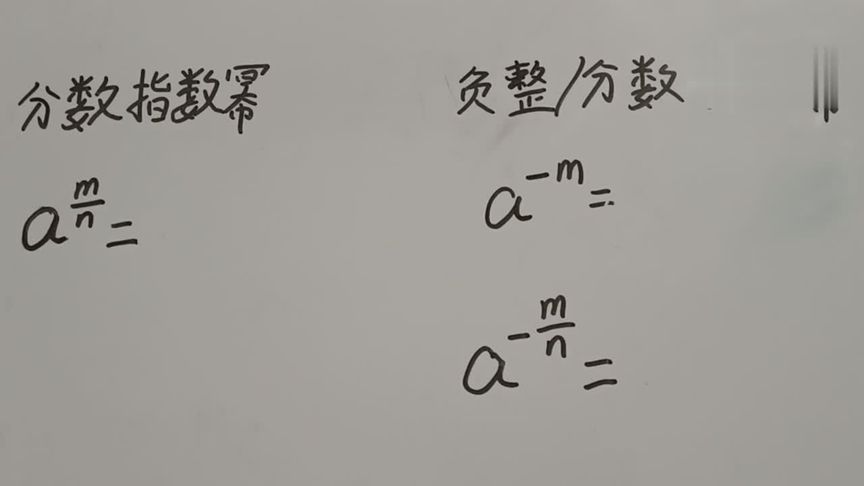 分数指数幂
a^{\frac{m}{n}}=
负整/分数
a^{-m}=
a^{-\frac{m}{n}}=